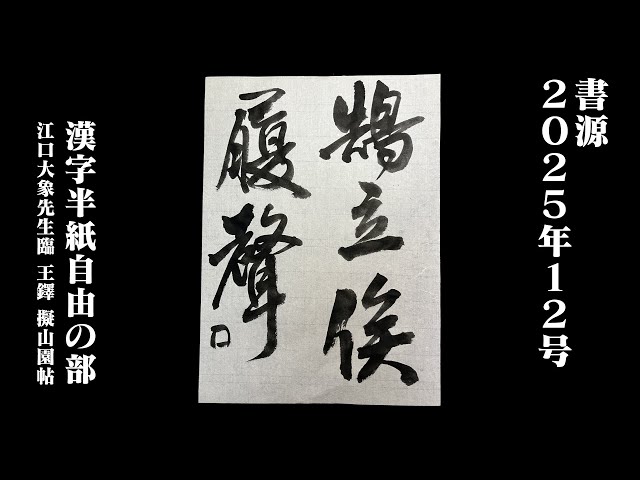 書源
２０２５年１２号
鵠立俟
履聲
漢字半紙自由の部
江口大象先生臨 王鐸 擬山園帖